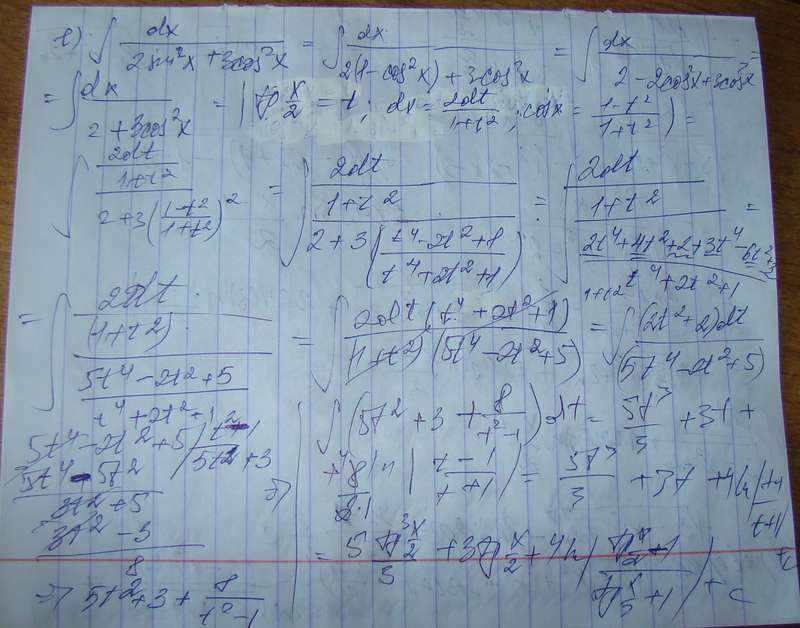 e) ∫ dx / (2sin²x + 3cos²x) = ∫ dx / (2(1-cos²x) + 3cos²x) = ∫ dx / (2 - 2cos²x + 3cos²x) =
= ∫ dx / (2 + 3cos²x) = | tg x/2 = t; dx = 2dt / (1+t²); cosx = (1-t²) / (1+t²) | =
∫ (2dt / (1+t²)) / (2 + 3((1-t²)/(1+t²))²) = ∫ (2dt / (1+t²)) / (2 + 3((t⁴-2t²+1)/(t⁴+2t²+1))) = ∫ (2dt / (1+t²)) / ((2t⁴+4t²+2+3t⁴-6t²+3) / (t⁴+2t²+1)) =
= ∫ (2dt / (1+t²)) / ((5t⁴-2t²+5) / (t⁴+2t²+1)) = ∫ 2dt(t⁴+2t²+1) / ((1+t²)(5t⁴-2t²+5)) = ∫ (2t²+2)dt / (5t⁴-2t²+5)
5t⁴-2t²+5 | t²-1
5t⁴-5t² | 5t²+3
3t²+5
3t²-3
8
=> 5t²+3 + 8/(t²-1)
=> ∫ (5t²+3 + 8/(t²-1)) dt = 5t³/3 + 3t +
+ 8/(2·1) ln | (t-1)/(t+1) | = 5t³/3 + 3t + 4ln | (t-1)/(t+1) |
= 5 tg³ x/2 / 3 + 3tg x/2 + 4ln | (tg x/2 - 1) / (tg x/2 + 1) | + c